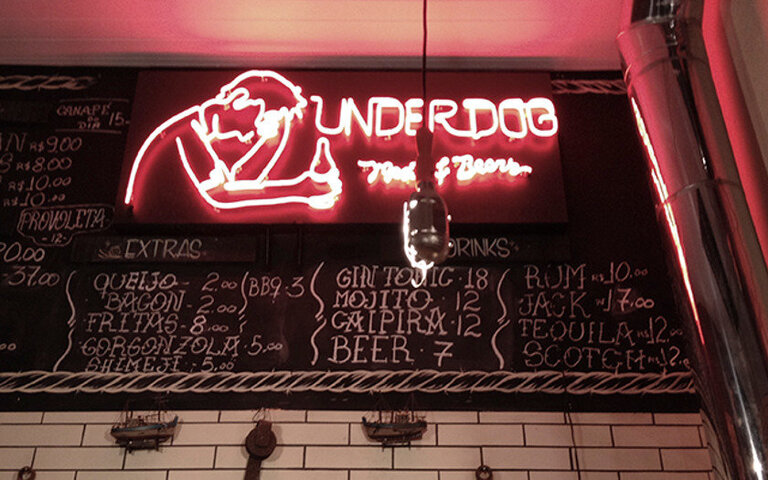 UNDERDOG
Meat & Beers
CANAPÉ
DO
DIA
15.
R$ 9.00
R$ 8.00
R$ 10.00
R$ 10.00
PROVOLETA
-12-
37.00
EXTRAS
QUEIJO - 2.00
BACON - 2.00
FRITAS - 8.00
GORGONZOLA . 5.00
SHIMEJI . 5.00
BBQ . 3
DRINKS
GIN TONIC . 18
MOJITO . 12
CAIPIRA . 12
BEER . 7
RUM R$ 10.00
JACK R$ 17.00
TEQUILA R$ 12.00
SCOTCH R$ 12.0